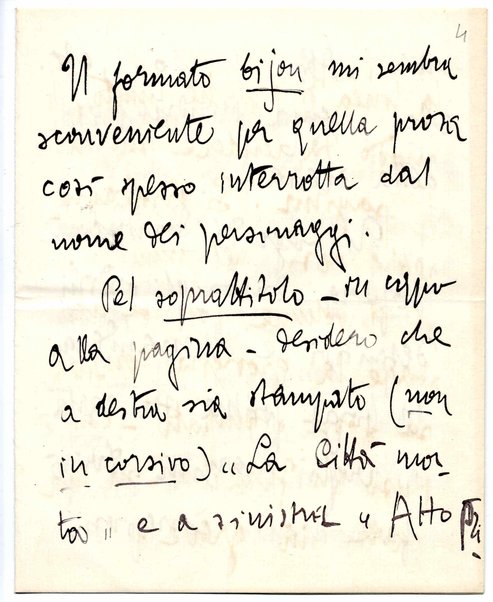 4
Il formato bijou mi sembra
sconveniente per quella prosa
così spesso interrotta dal
nome dei personaggi.
Pel soprattitolo – in capo
alla pagina – desidero che
a destra sia stampato (non
in corsivo) „ La Città mor-
ta „ e a sinistra „ Atto